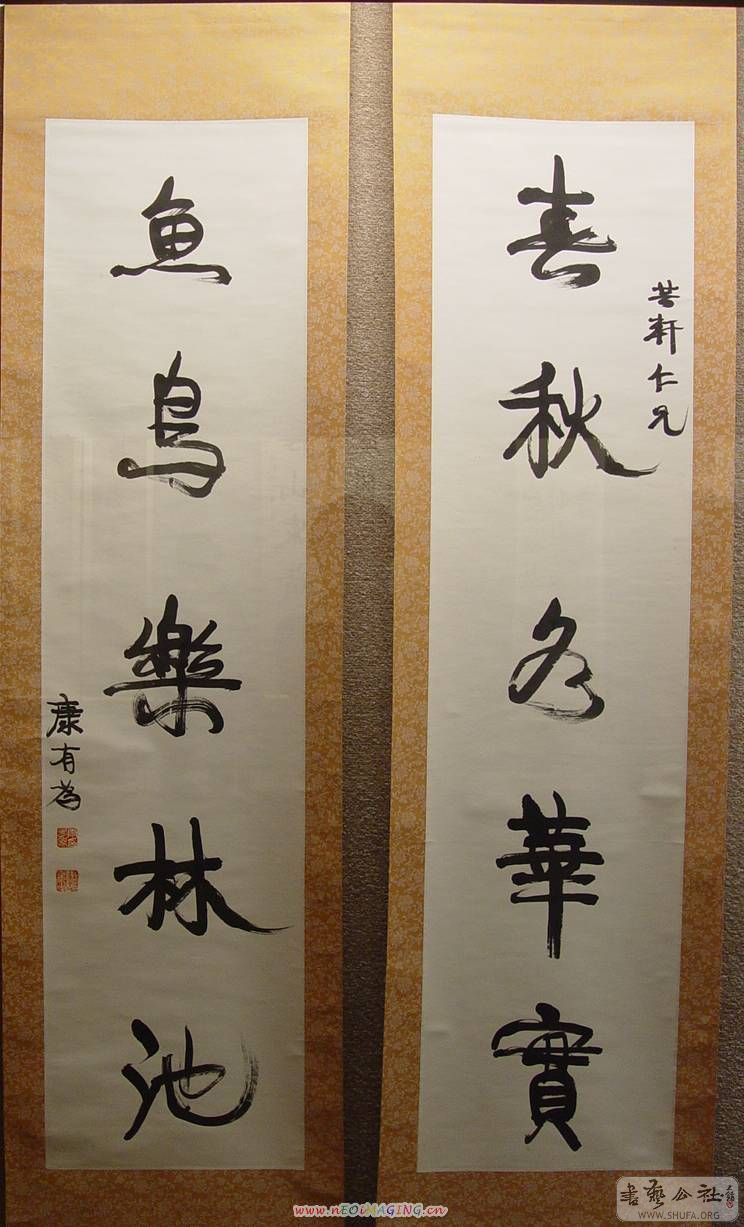 春秋多華實
軒仁兄
魚鳥樂林池
康有為
www.nEOiMAGING.cn
書藝公社
WWW.SHUFA.ORG